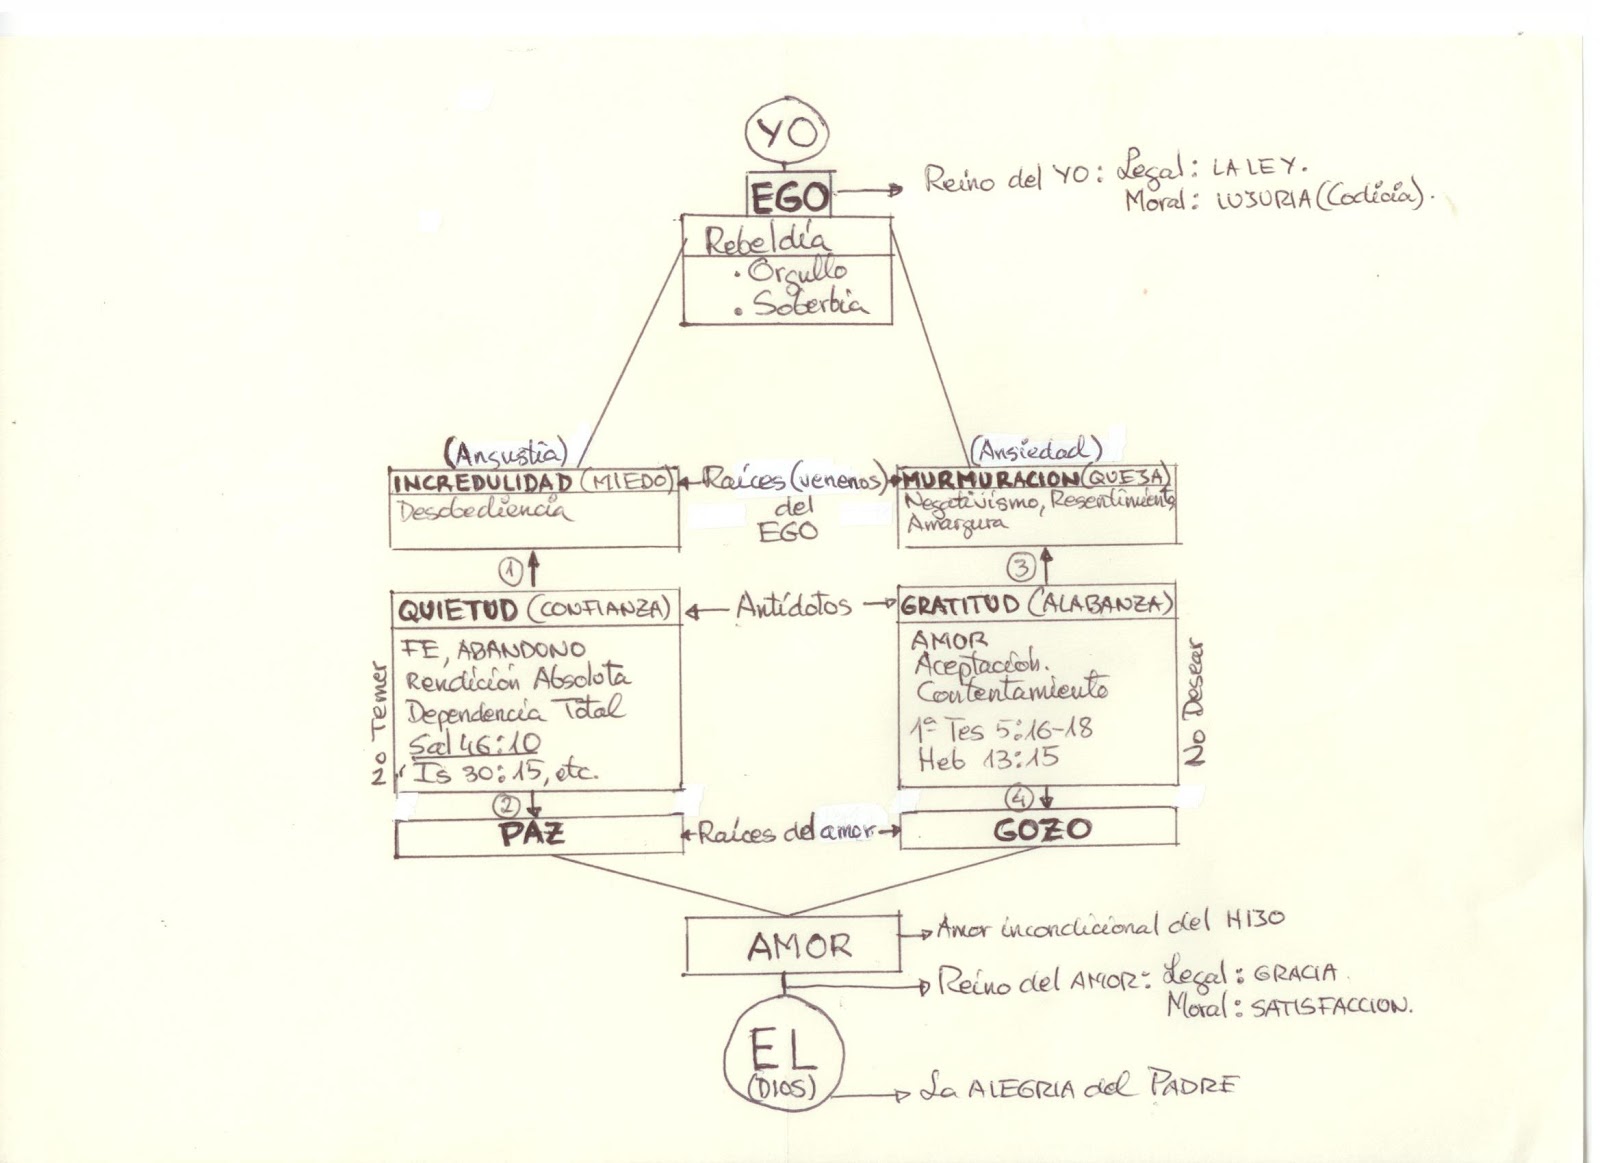 YO
EGO
Reino del YO: Legal: LA LEY.
Moral: LUJURIA (Codicia).
Rebeldía
• Orgullo
• Soberbia
(Angustia)
(Ansiedad)
INCREDULIDAD (MIEDO)
Desobediencia
Raíces (venenos)
del
EGO
MURMURACION (QUEJA)
Negativiismo, Resentimiento
Amargura
1
3
QUIETUD (CONFIANZA)
Antídotos
GRATITUD (ALABANZA)
No Temer
FE, ABANDONO
Rendición Absoluta
Dependencia Total
Sal 46:10
Is 30:15, etc.
AMOR
Aceptación.
Contentamiento
1ª Tes 5:16-18
Heb 13:15
No Desear
2
4
PAZ
Raíces del amor
GOZO
AMOR
Amor incondicional del HIJO
Reino del AMOR: Legal: GRACIA.
Moral: SATISFACCION.
EL
(DIOS)
La ALEGRIA del PADRE